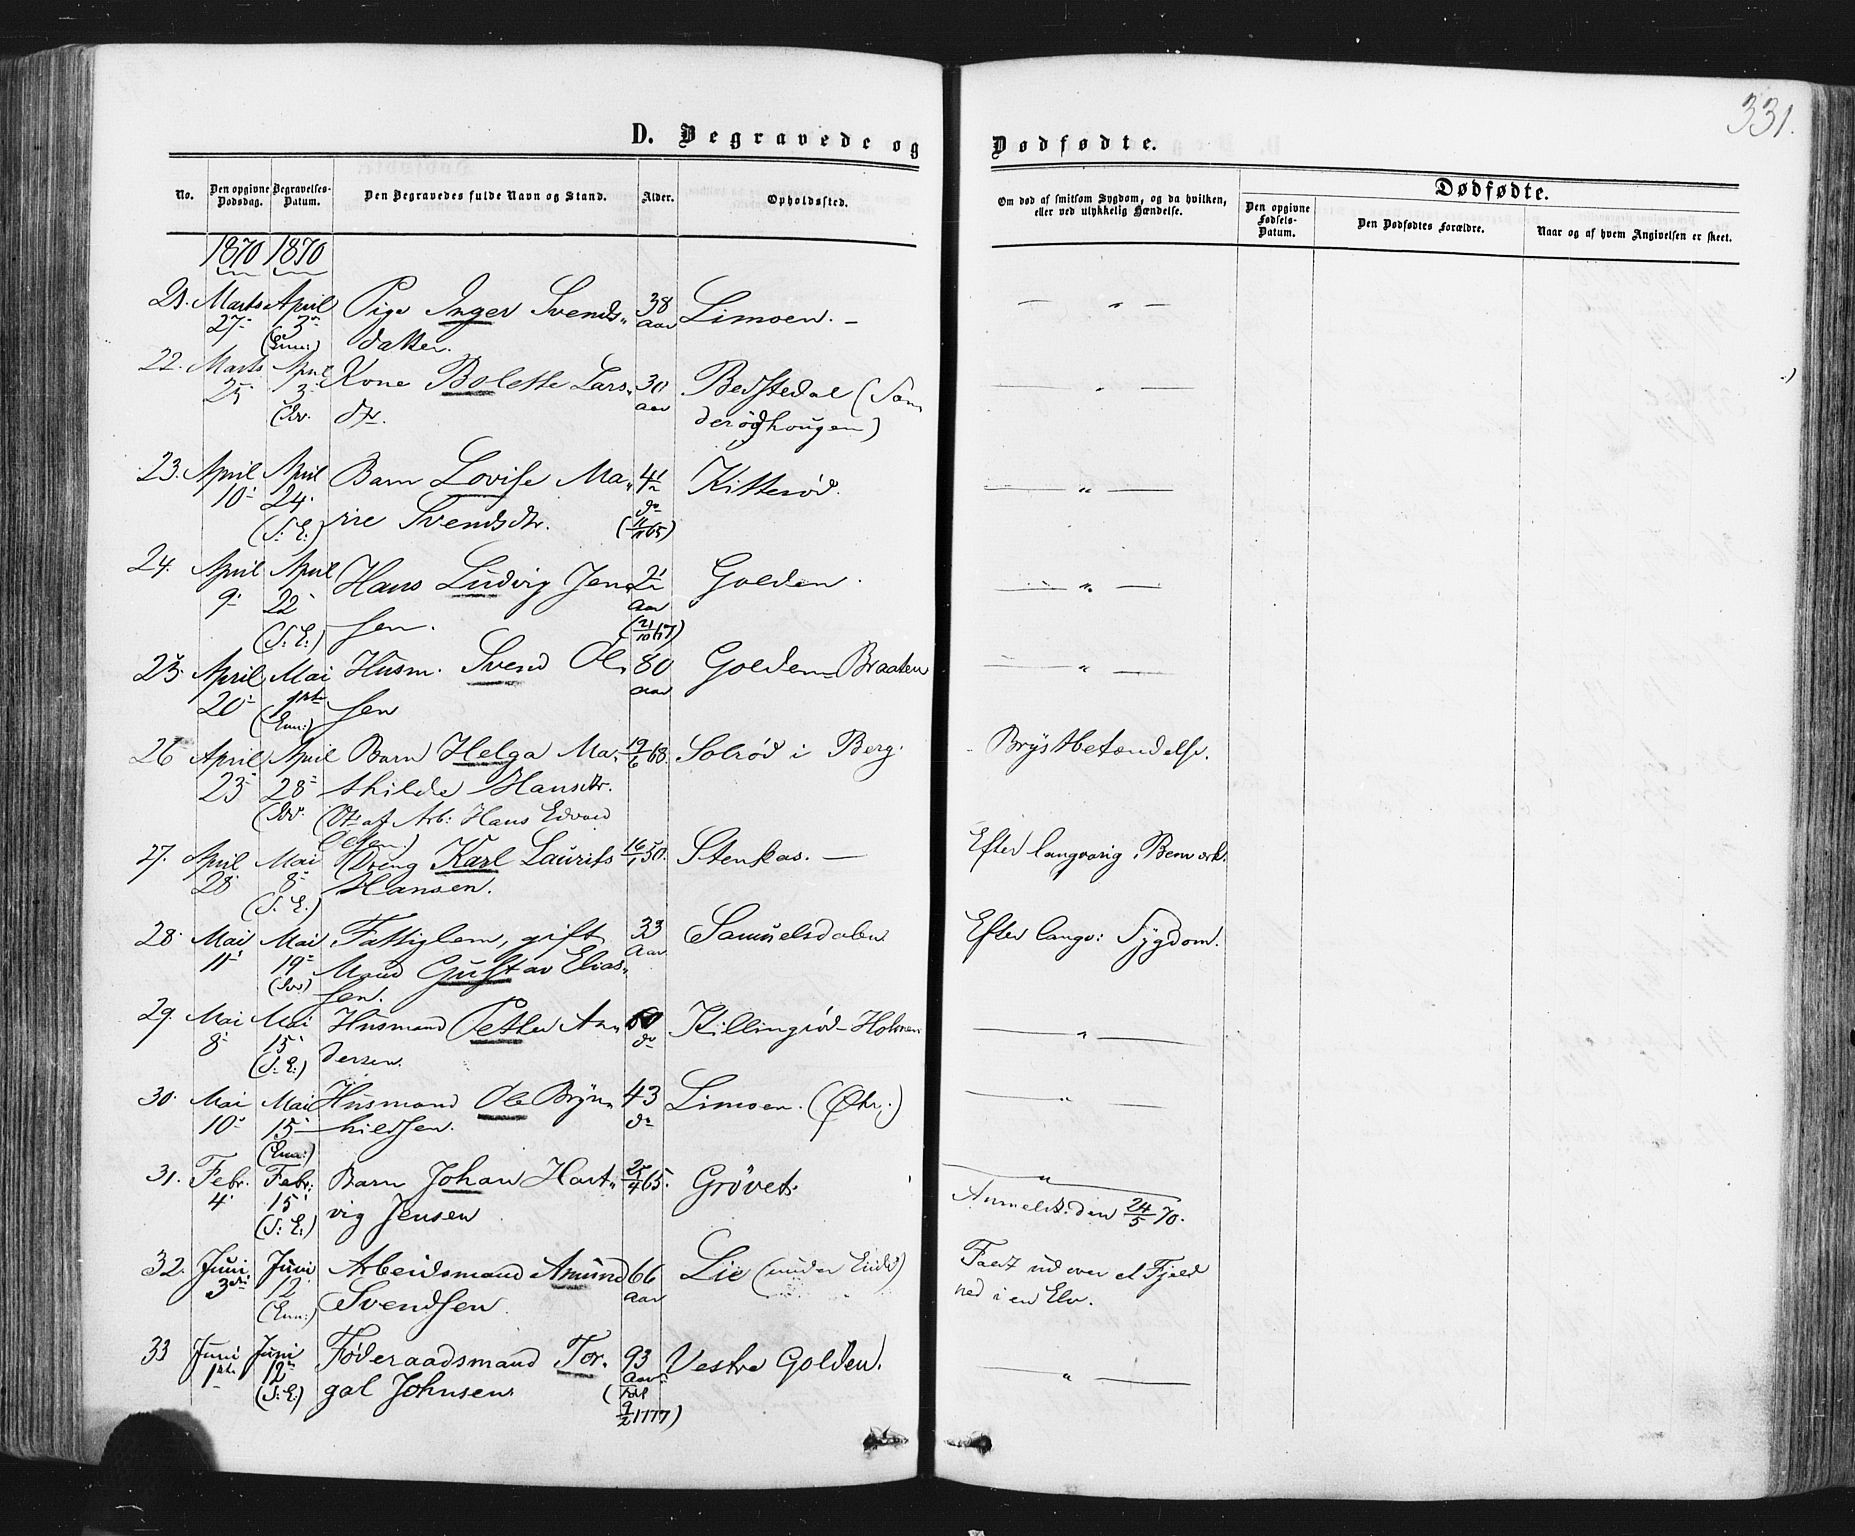 331.
D. Begravede og Dødfødte.
No.
Den opgivne Dødsdag.
Begravelses-Datum.
Den Begravedes fulde Navn og Stand.
Alder.
Opholdssted.
Om død af smitsom Sygdom, og da hvilken, eller ved ulykkelig Hændelse.
Dødfødte.
Den opgivne Fødsels-Datum.
Den Dødfødtes Forældre.
Naar og af hvem Angivelsen er skeet.
1870 1870
21. Marts April Pige Inger Svends- 38 Limoen. — — " —
27 3 datter. aar
22. Marts April Kone Bolette Lars- 30 Bedstedal — " —
25 3 dtr. aar
23. April April Barn Lovise Ma- 4½ Kitterød. — " —
10 24 rie Svendsdtr. do
(S: E:)
24. April April Hans Ludvig Jen- 2½ Golden. — " —
9 22 sen. aar
(S. E.) (21/10 67)
25. April Mai Husm. Svend Ol- 80 Golden-Braaten — " —
20 1ste sen aar
26 April April Barn Helga Ma- 19/6 68. Solrød i Berg. Brystbetændelse.
23 28 thilde Hansdtr.
(D. af Arb: Hans Edvard
27. April Mai Dreng Karl Laurits 16/1 50. Stenkas. — Efter langvarig
28 8 Hansen.
(S. E.)
28. Mai Mai Fattiglem, gift 33 Samuelsdalen Efter langv: Sygdom.
11 19 Mand Gustav Elias- Aar
sen.
29. Mai Mai Husmand Petter An- 60 Killingrød-Holmen — " —
8 15 dersen. do
(S. E:)
30. Mai Mai Husmand Ole Bryn- 43 Limoen. — " —
10 15 hildsen. do
31. Febr. Febr. Barn Johan Hart- 25/4 65. Grøvet. "
4 15 vig Jensen Anmeldt den 24/5 70.
(S: E:)
32. Juni Juni Arbeidsmand Amund 66 Lie Faldt ud over et Fjeld
3die 12 Svendsen. aar ned i en Elv.
33 Juni Juni Føderaadsmand Tor- 93 Vestre Golden. — " —
1ste 12 gal Johnsen. aar
(S: E:) 9/2 1777)